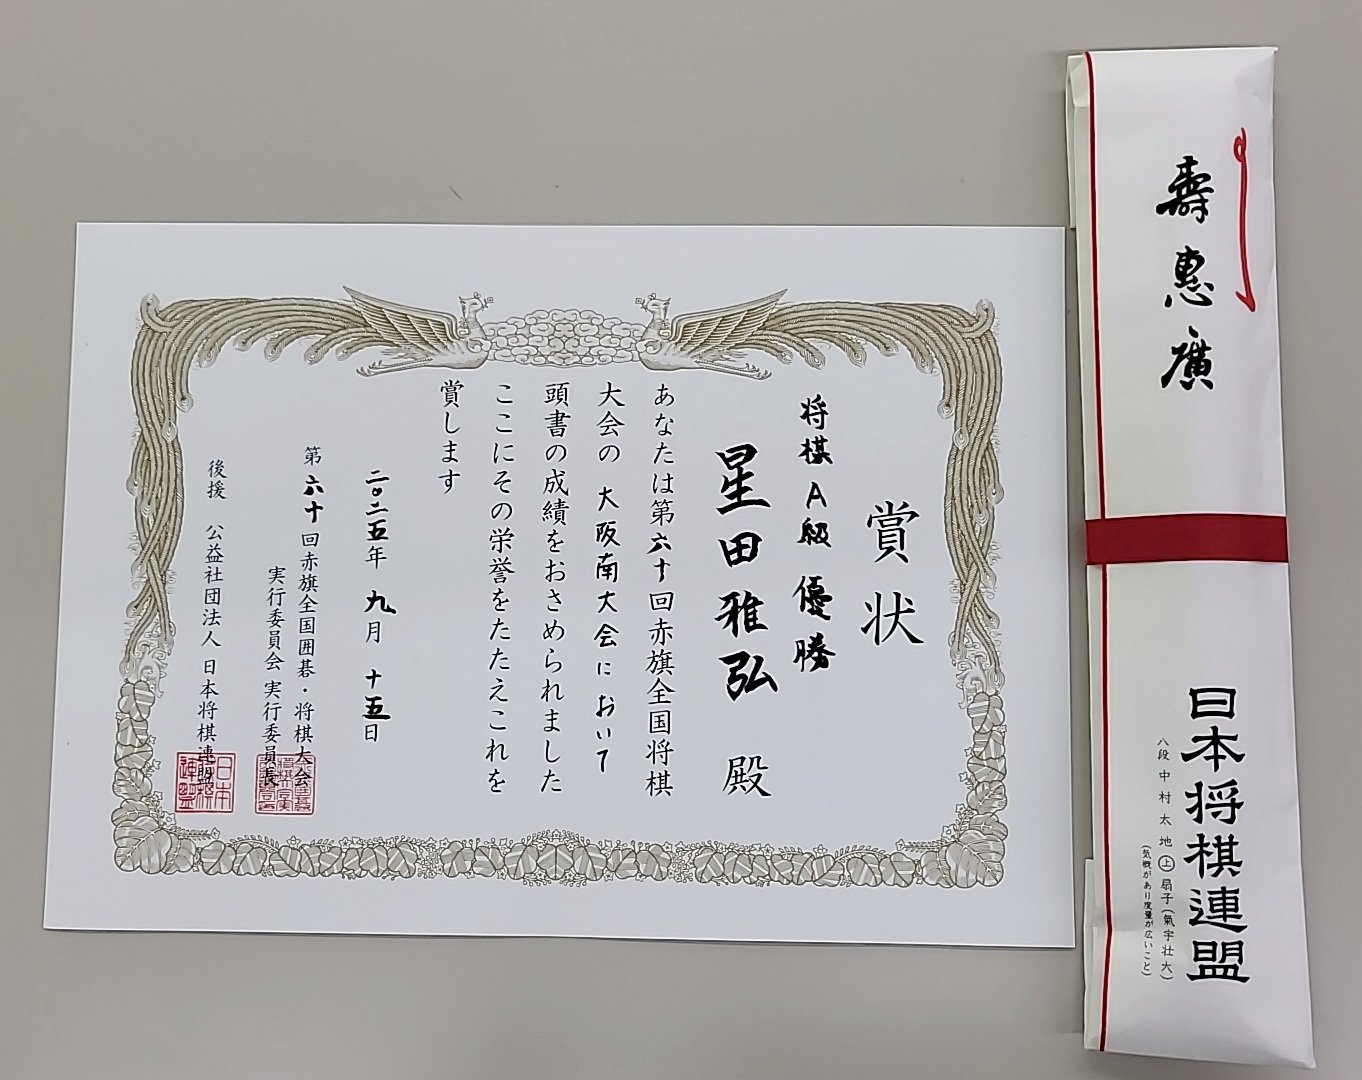 賞状
将棋A級 優勝
星田雅弘 殿
あなたは第六十回赤旗全国将棋
大会の 大阪南大会において
頭書の成績をおさめられました
ここにその栄誉をたたえこれを
賞します
二〇二五年 九月 十五日
第六十回赤旗全国囲碁・将棋大会
実行委員会 実行委員長
後援 公益社団法人 日本将棋連盟
壽惠廣
日本将棋連盟
八段 中村太地 上 扇子(氣宇壮大)
(気概があり度量が広いこと)